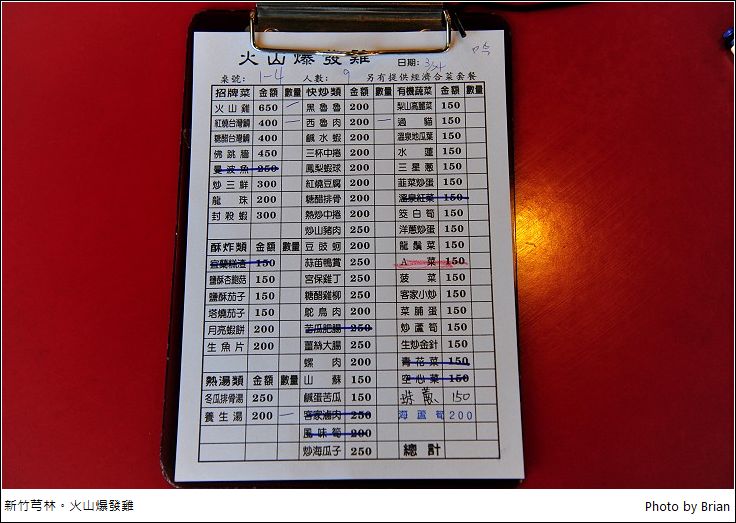 火山爆發雞
日期: 3/24
桌號: 1-4 人數: 9 另有提供經濟合菜套餐
招牌菜 金額 數量 快炒類 金額 數量 有機蔬菜 金額 數量
火山雞 650 黑魯魯 200 梨山高麗菜 150
紅燒台灣鯛 400 西魯肉 200 過貓 150
糖醋台灣鯛 400 鹹水蝦 200 溫泉地瓜葉 150
佛跳牆 450 三杯中捲 200 水蓮 150
曼波魚 250 鳳梨蝦球 200 三星蔥 150
炒三鮮 300 紅燒豆腐 200 韮菜炒蛋 150
龍珠 200 糖醋排骨 200 溫泉紅菜 150
封殺蝦 300 熱炒中捲 200 筊白筍 150
炒山豬肉 250 洋蔥炒蛋 150
酥炸類 金額 數量 豆豉蚵 200 龍鬚菜 150
宜蘭糕渣 150 蒜苗鴨賞 250 A菜 150
鹽酥杏鮑菇 150 宮保雞丁 250 菠菜 150
鹽酥茄子 150 糖醋雞柳 250 客家小炒 150
塔燒茄子 150 鴕鳥肉 200 菜脯蛋 150
月亮蝦餅 200 苦瓜肥腸 250 炒蘆筍 150
生魚片 200 薑絲大腸 250 生炒金針 150
螺肉 200 青花菜 150
熱湯類 金額 數量 山蘇 150 空心菜 150
冬瓜排骨湯 250 鹹蛋苦瓜 150 珠蔥 150
養生湯 200 客家滷肉 250 海蘆筍 200
風味筍 200
炒海瓜子 250 總計
新竹芎林。火山爆發雞
Photo by Brian